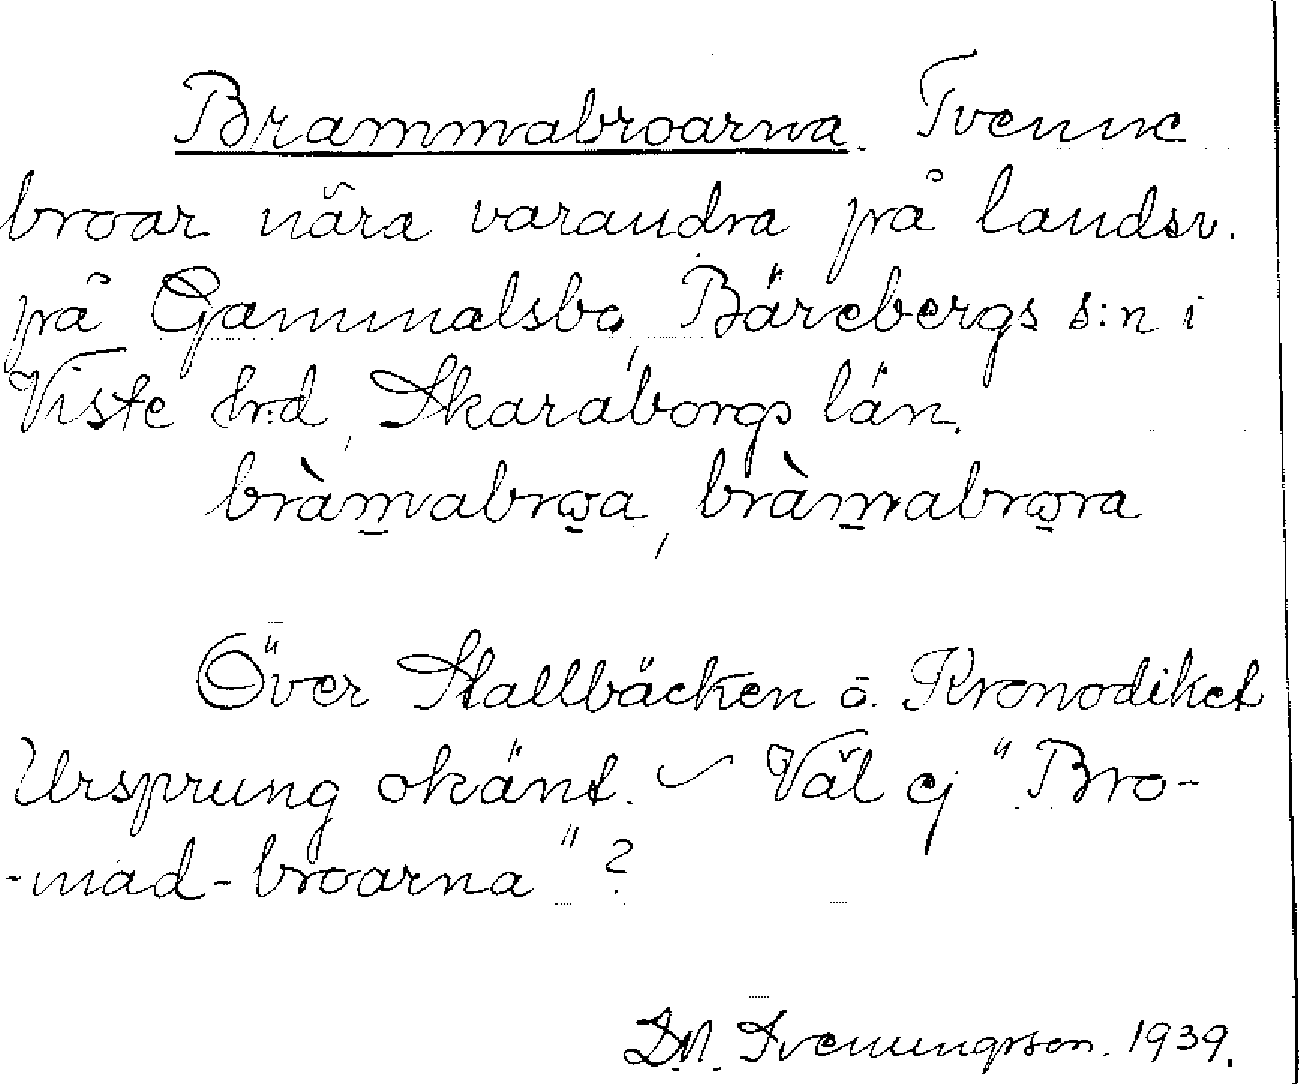 Brammabroarna. Tvenne
broar nära varandra på landsv.
på Gammalsbo, Bärebergs s:n i
Viste h:d, Skaraborgs län.
bràm̱abro̱a, bràm̱abro̱ra
Över Stallbäcken o. Kronodiket
Ursprung okänt. ~ Väl ej "Bro-
-mad-broarna"?
D.N. Svenungsson. 1939.